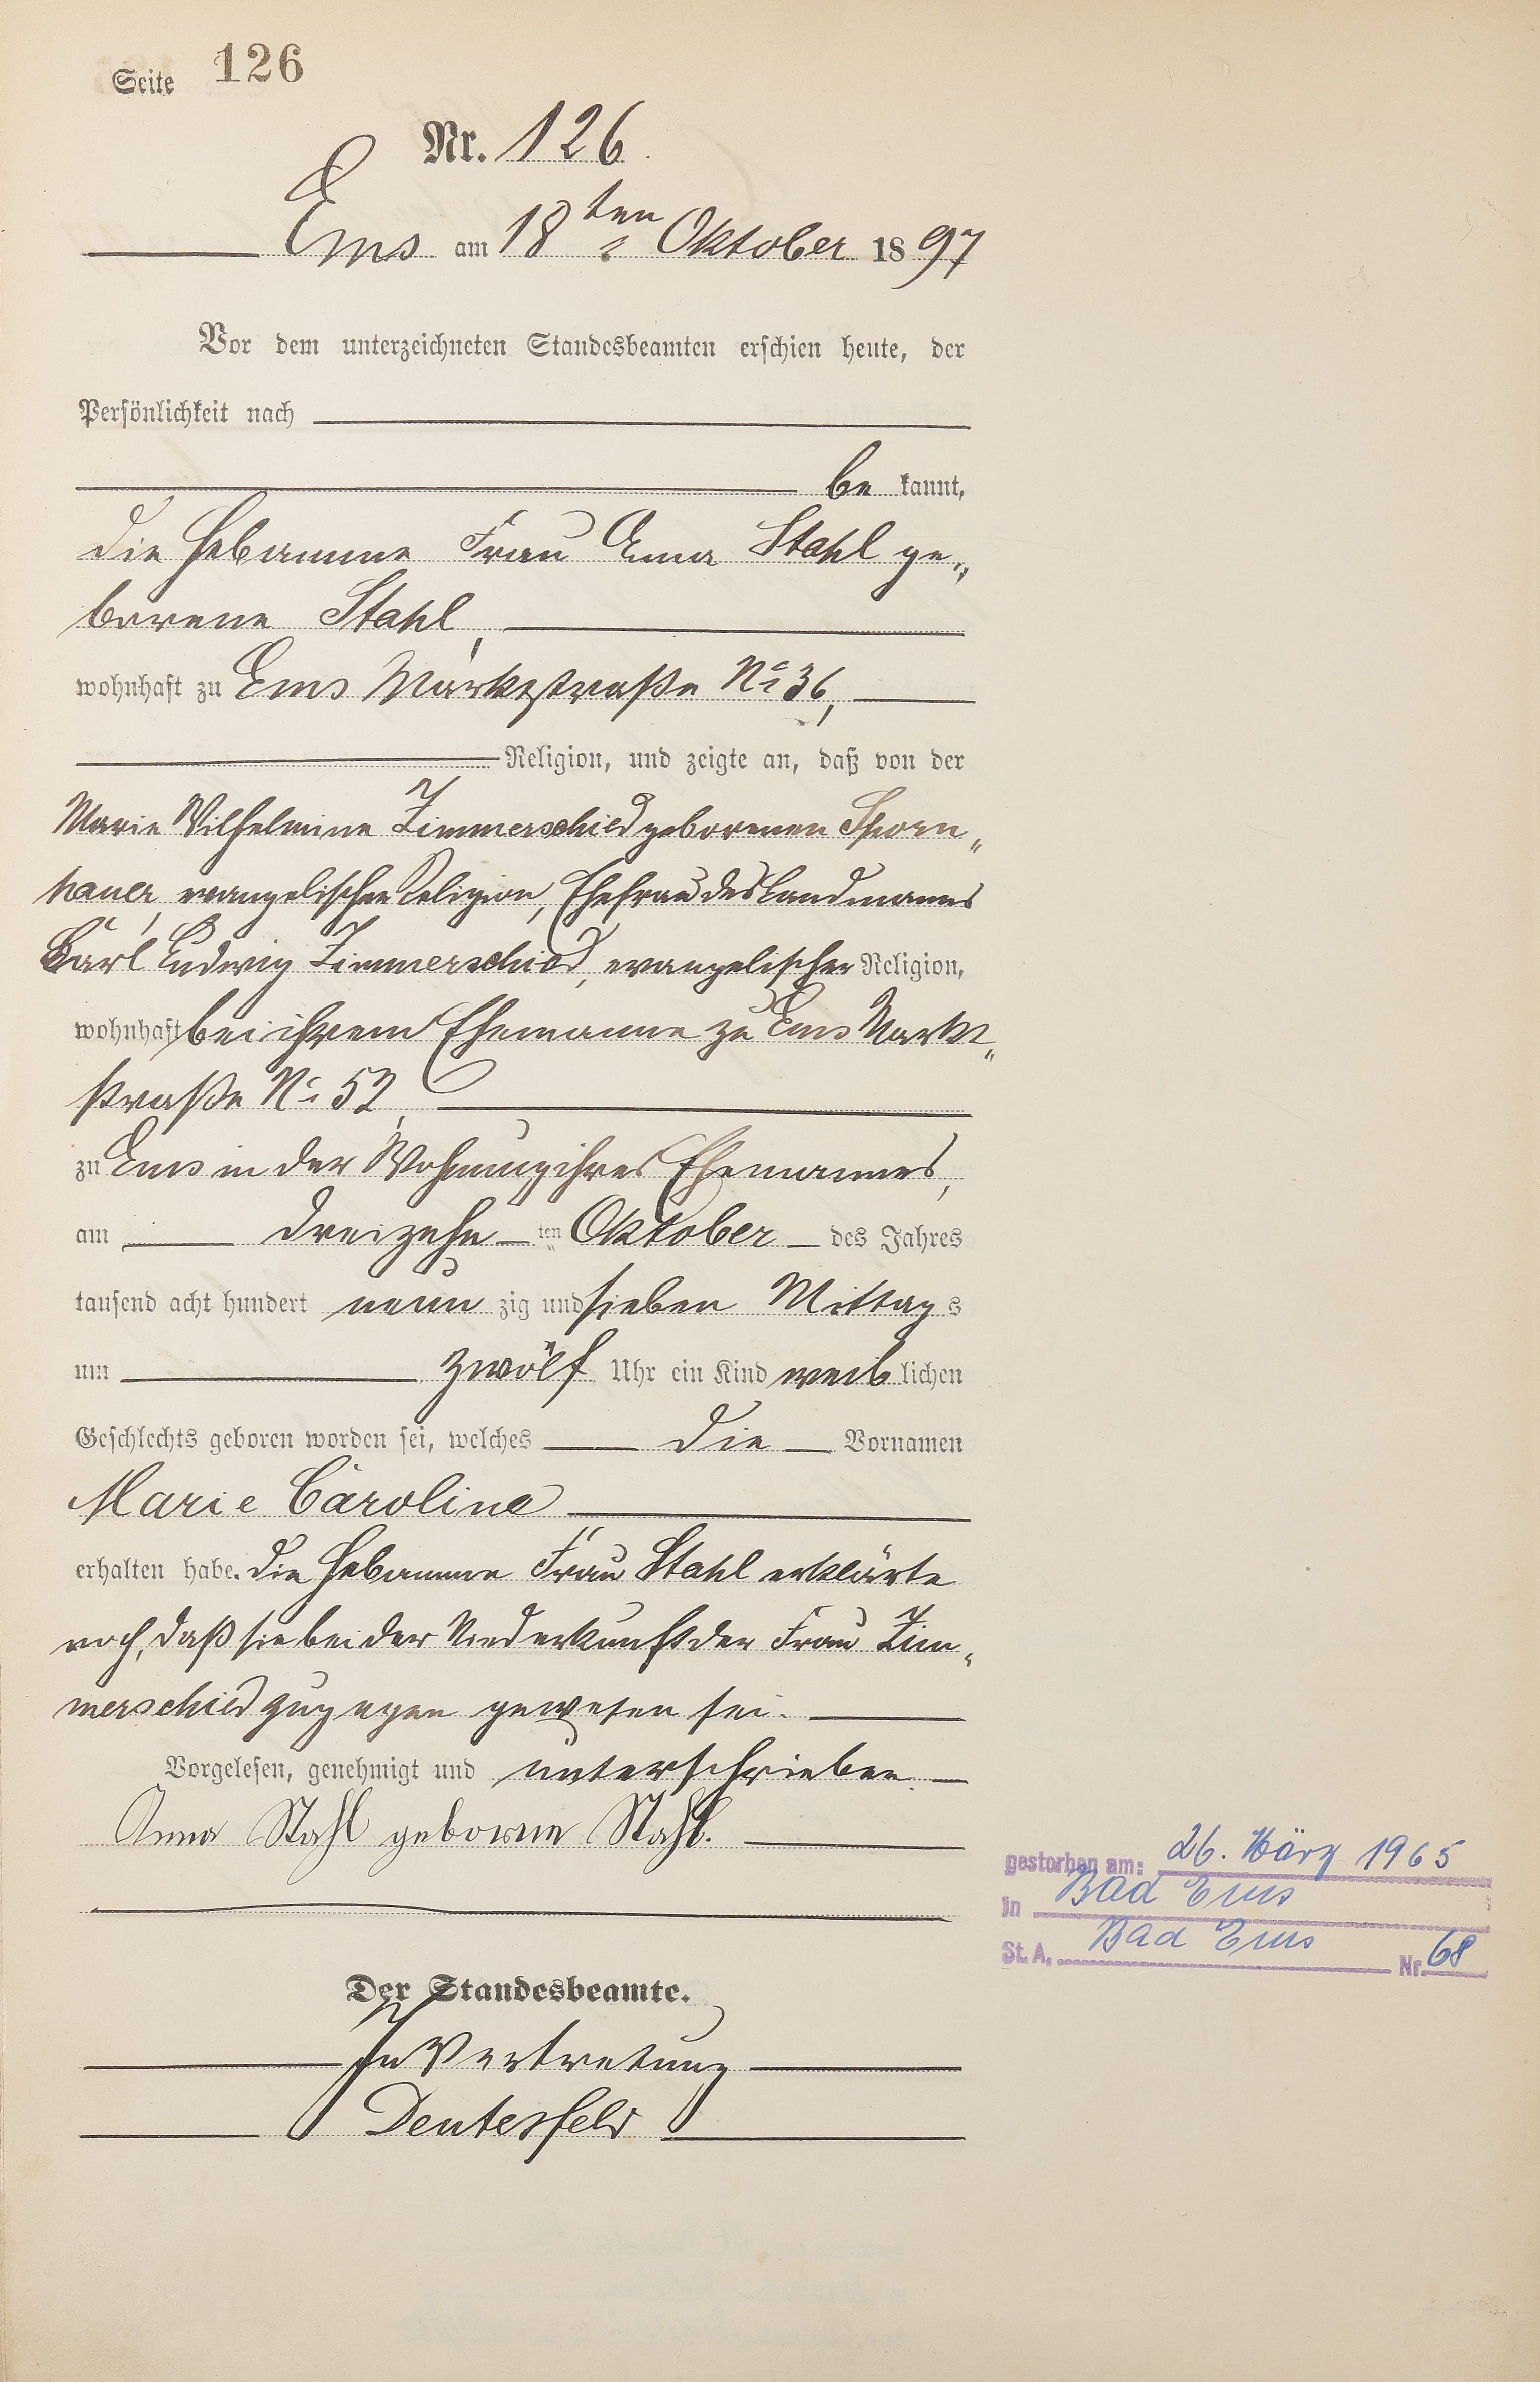 Seite 126
Nr. 126.
Ems am 18ten Oktober 1897
Vor dem unterzeichneten Standesbeamten erschien heute, der
Persönlichkeit nach
be kannt,
die Hebamme Frau Anna Stahl ge„
borene Stahl,
wohnhaft zu Ems Marktstraße No 36,
Religion, und zeigte an, daß von der
Marie Wilhelmine Zimmerschied geborenen Sporn„
hauer, evangelischer Religion, Ehefrau des Landmannes
Karl Ludwig Zimmerschied, evangelischer Religion,
wohnhaft bei ihrem Ehemanne zu Ems Markt„
straße No 52,
zu Ems in der Wohnung ihres Ehemannes,
am dreizehn ten Oktober des Jahres
tausend acht hundert neun zig und sieben Mittag s
um zwölf Uhr ein Kind weib lichen
Geschlechts geboren worden sei, welches die Vornamen
Marie Caroline
erhalten habe. Die Hebamme Frau Stahl erklärte
noch, daß sie bei der Niederkunft der Frau Zim„
merschied zugegen gewesen sei.
Vorgelesen, genehmigt und unterschrieben.
Anna Stahl geborne Stahl.
gestorben am: 26. März 1965
in Bad Ems
St. A. Bad Ems Nr. 68
Der Standesbeamte.
In Vertretung
Deutesfeld